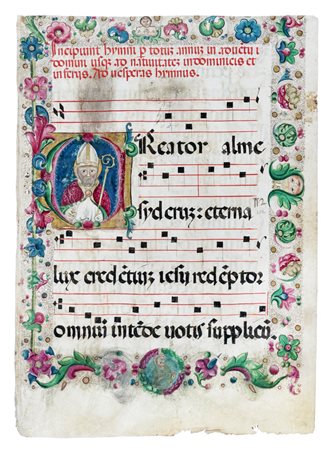 Incipiunt hymni p totuz annuz in aduētu
domini usq; ad natiuitatez in dominicis et
in feriis. Ad uesperas hymnus.
Creator alme
syderuz: eterna
lux credētiuz iesu redēptor
omniū intēde uotis supplicū.